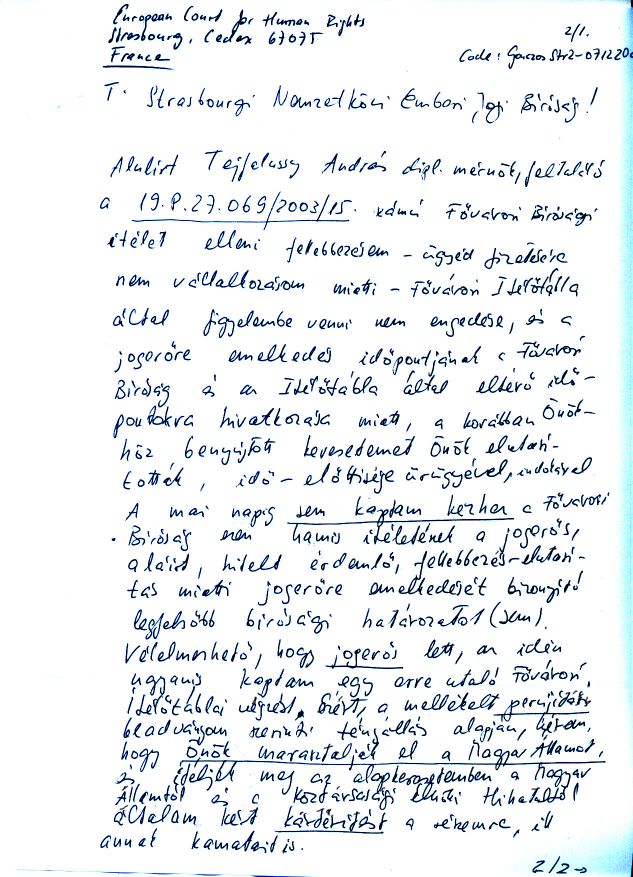 European Court for Human Rights
2/1.
Strasbourg, Cedex 67075
France
Code: GarzosStr2-071220
T. Strasbourgi Nemzetközi Emberi Jogi Bíróság!
Alulírt Tejfalussy András dipl. mérnök, feltaláló
a 19.P.27.069/2003/15. számú Fővárosi Bírósági
ítélet elleni fellebbezésem - ügyvéd fizetésére
nem vállalkozásom miatti - Fővárosi Ítélőtábla
által figyelembe venni nem engedése, és a
jogerőre emelkedés időpontjának a Fővárosi
Bíróság és az Ítélőtábla által eltérő idő-
pontokra hivatkozása miatt, a korábban Önök-
höz benyújtott keresetemet Önök elutasí-
tották, idő-előttisége ürügyével, indokával
A mai napig sem kaptam kézhez a Fővárosi
Bíróság ezen hamis ítéletének a jogerős,
aláírt, hitelt érdemlő, fellebbezés-elutasí-
tás miatti jogerőre emelkedését bizonyító
legfelsőbb bírósági határozatot (sem).
Vélelmezhető, hogy jogerős lett, az idén
ugyanis kaptam egy erre utaló Fővárosi
Ítélőtáblai végzést. Ezért, a mellékelt perújítási
beadványom szerinti tényállás alapján, kérem,
hogy Önök marasztalják el a Magyar Államot,
és ítéljék meg az alapkeresetemben a Magyar
Államtól és a Köztársasági Elnöki Hivataltól
általam kért kártérítést a részemre, ill
annak kamatait is.
2/2→